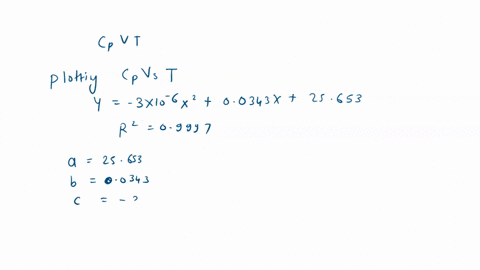 Cp V T
Plottiy Cp Vs T
Y = -3x10⁻⁶ x² + 0.0343x + 25.653
R² = 0.9997
a = 25.653
b = 0.0343
c = -